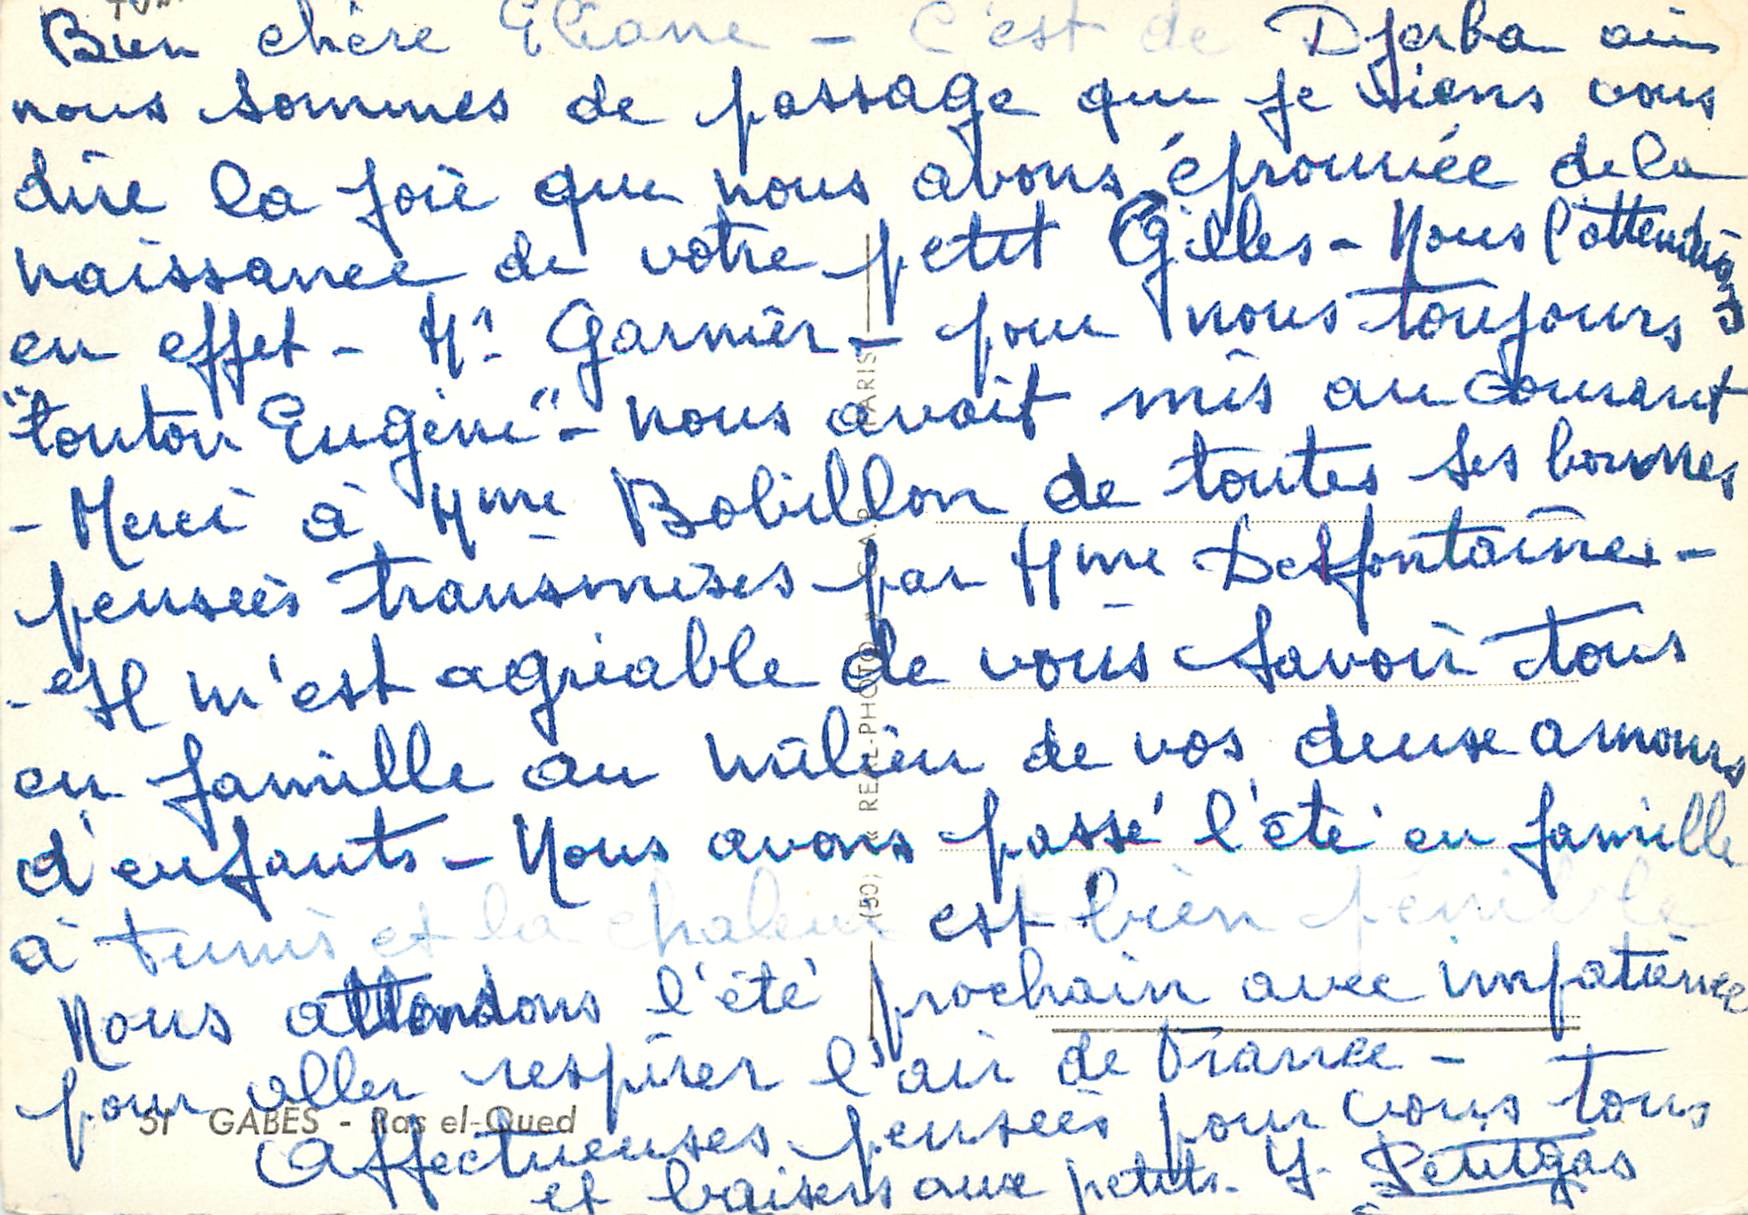 Bien chère Eliane - C'est de Djerba où
nous sommes de passage que je viens vous
dire la joie que nous avons éprouvée de la
naissance de votre petit Gilles - Nous l'attendions
en effet - Mr Garnier - pour nous toujours
"tonton Eugène" - nous avait mis au courant
- Merci à Mme Bobillon de toutes ses bonnes
pensées transmises par Mme Desfontaines -
- Il m'est agréable de vous savoir tous
en famille au milieu de vos deux amours
d'enfants - Nous avons passé l'été en famille
à Tunis et la chaleur est bien pénible
Nous attendons l'été prochain avec impatience
pour aller respirer l'air de France -
Affectueuses pensées pour vous tous
et baisers aux petits. Y. Petitgas
51 GABÈS - Ras el-Oued
(50) « REAL-PHOTO » C.A.P. PARIS